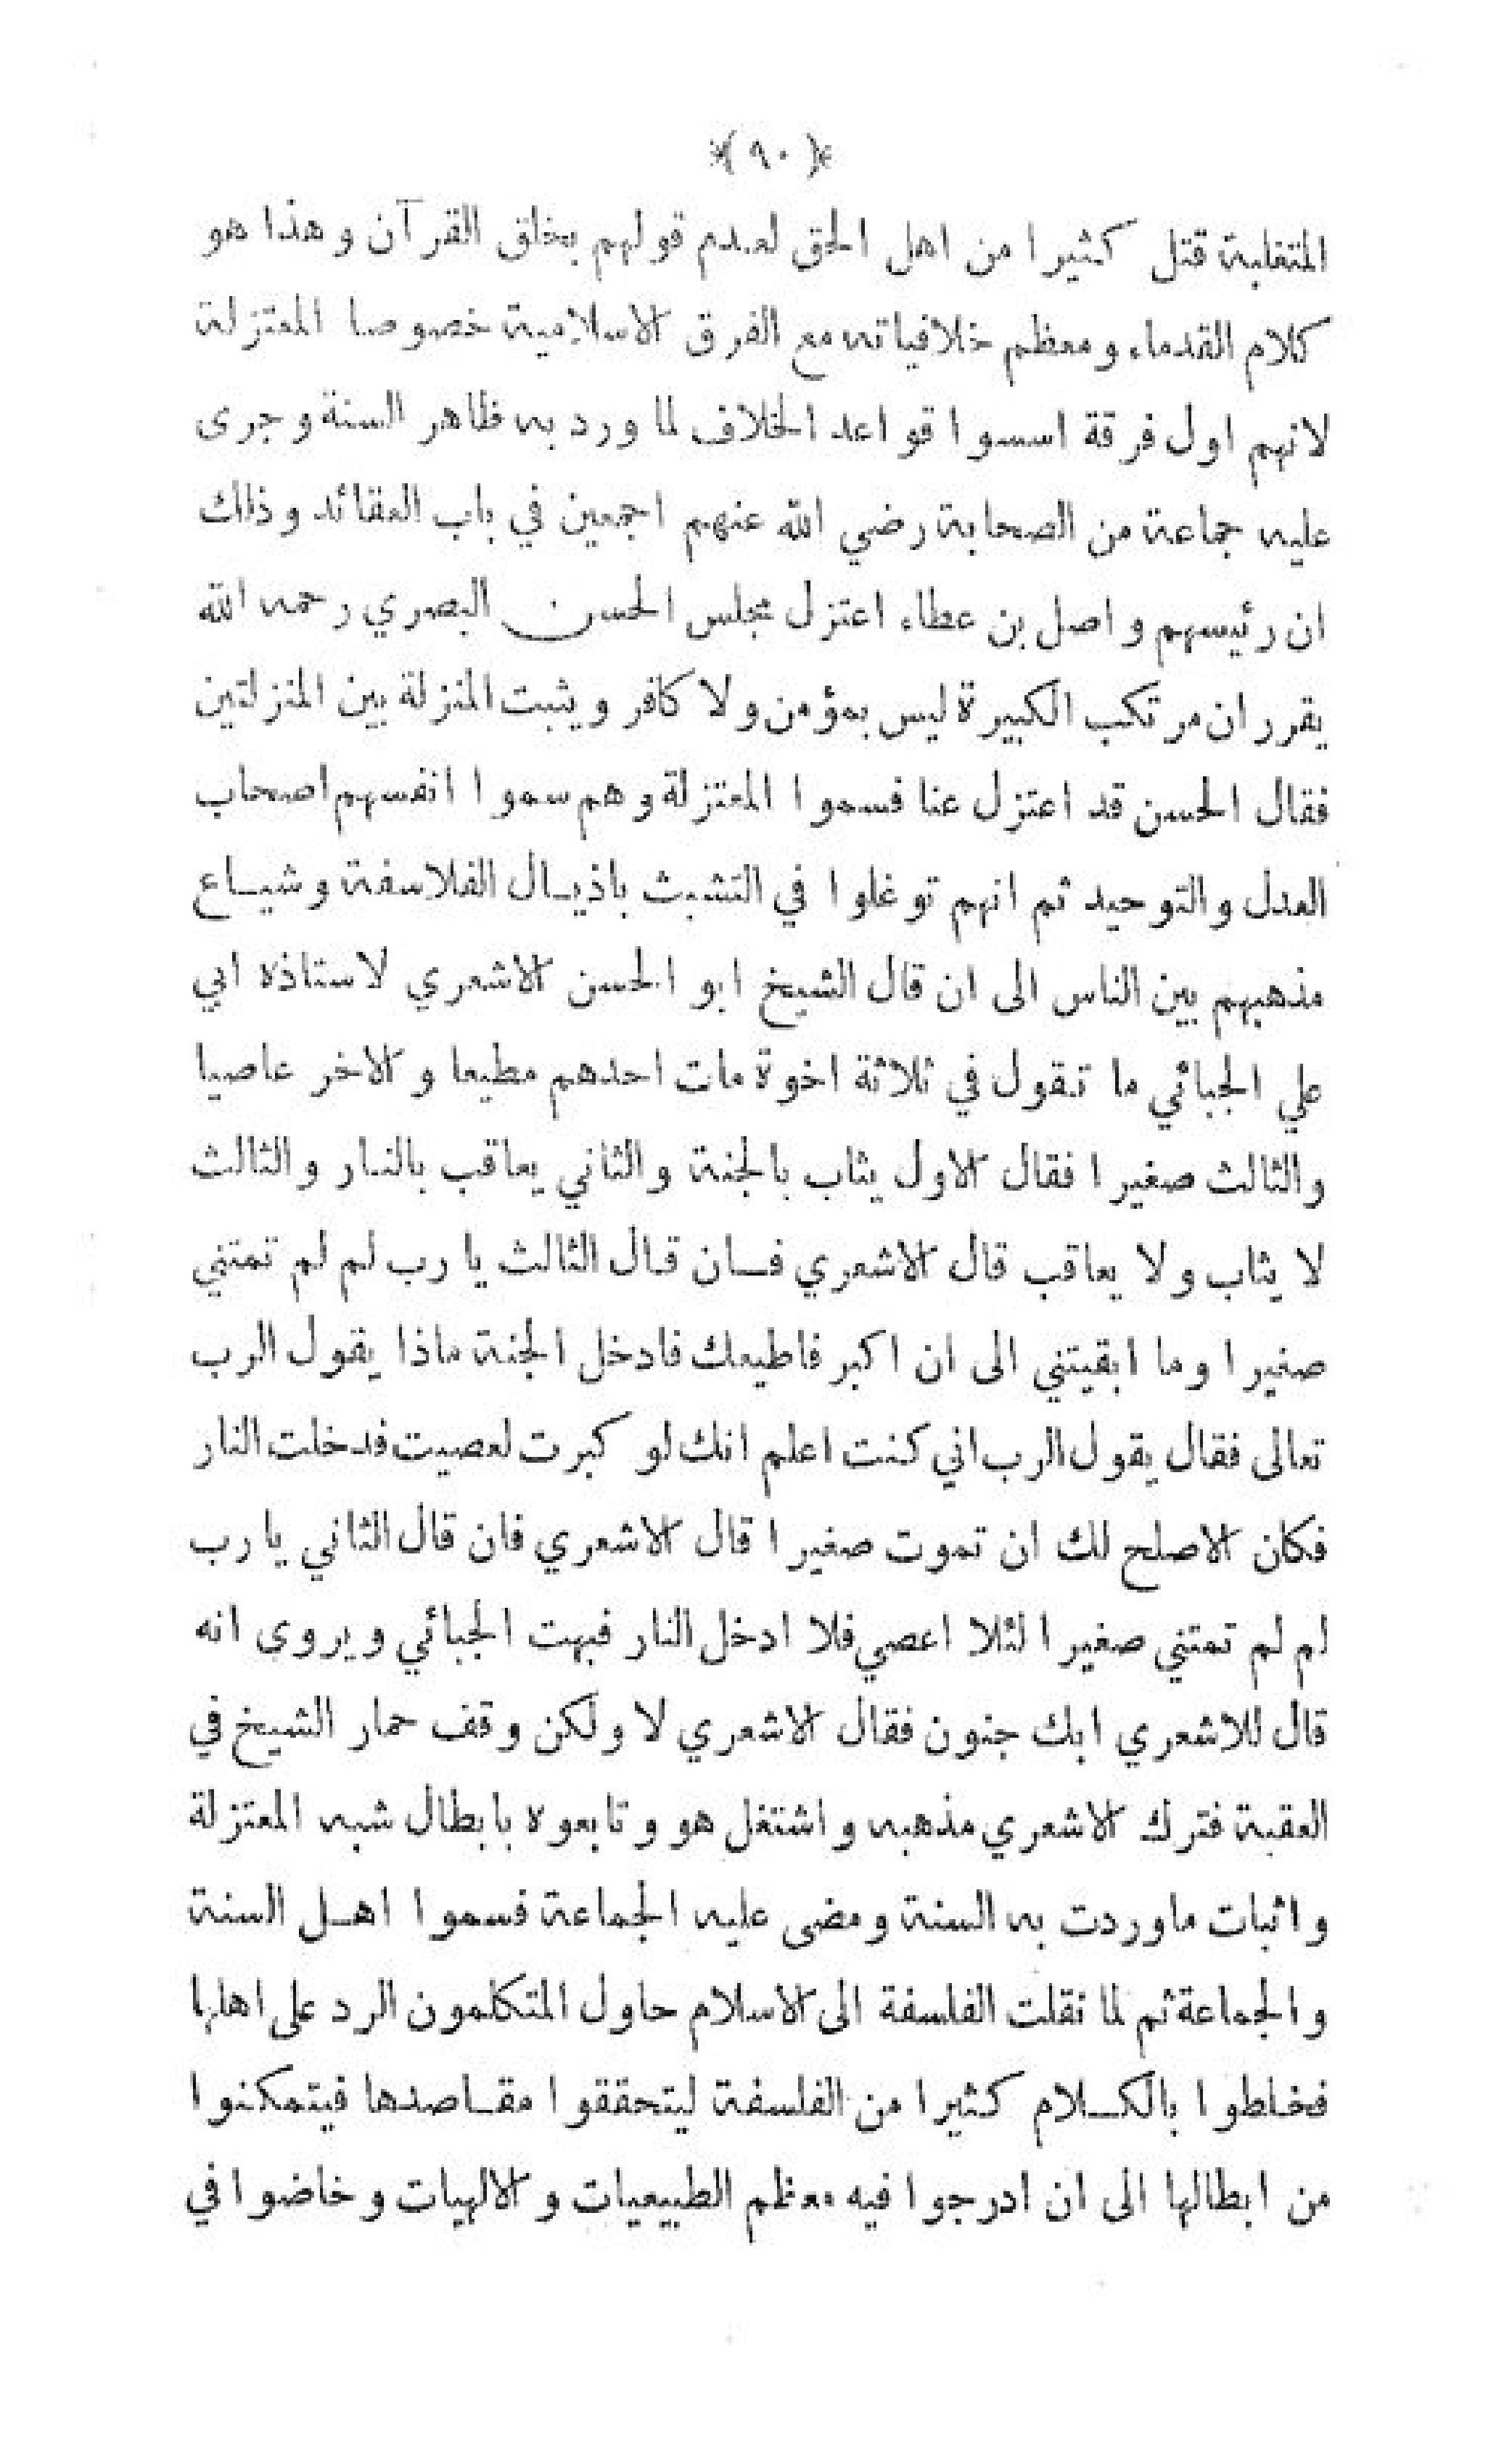 *( ٩٠ )*
المتغلبة قتل كثيرا من اهل الحق لعدم قولهم بخلق القرآن وهذا هو
كلام القدماء ومعظم خلافياته مع الفرق الاسلامية خصوصا المعتزلة
لانهم اول فرقة اسسوا قواعد الخلاف لما ورد به ظاهر السنة وجرى
عليه جماعة من الصحابة رضي الله عنهم اجمعين في باب العقائد وذلك
ان رئيسهم واصل بن عطاء اعتزل مجلس الحسن البصري رحمه الله
يقرر ان مرتكب الكبيرة ليس بمؤمن ولا كافر ويثبت المنزلة بين المنزلتين
فقال الحسن قد اعتزل عنا فسموا المعتزلة وهم سموا انفسهم اصحاب
العدل والتوحيد ثم انهم توغلوا في التشبث باذيال الفلاسفة وشياع
مذهبهم بين الناس الى ان قال الشيخ ابو الحسن الاشعري لاستاذه ابي
علي الجبائي ما تقول في ثلاثة اخوة مات احدهم مطيعا والاخر عاصيا
والثالث صغيرا فقال الاول يثاب بالجنة والثاني يعاقب بالنار والثالث
لا يثاب ولا يعاقب قال الاشعري فان قال الثالث يا رب لم لم تمتني
صغيرا وما ابقيتني الى ان اكبر فاطيعك فادخل الجنة ماذا يقول الرب
تعالى فقال يقول الرب اني كنت اعلم انك لو كبرت لعصيت فدخلت النار
فكان الاصلح لك ان تموت صغيرا قال الاشعري فان قال الثاني يا رب
لم لم تمتني صغيرا لئلا اعصي فلا ادخل النار فبهت الجبائي ويروى انه
قال للاشعري ابك جنون فقال الاشعري لا ولكن وقف حمار الشيخ في
العقبة فترك الاشعري مذهبه واشتغل هو وتابعوه بابطال شبه المعتزلة
واثبات ماوردت به السنة ومضى عليه الجماعة فسموا اهل السنة
والجماعة ثم لما نقلت الفلسفة الى الاسلام حاول المتكلمون الرد على اهلها
فخلطوا بالكلام كثيرا من الفلسفة ليتحققوا مقاصدها فيتمكنوا
من ابطالها الى ان ادرجوا فيه معظم الطبيعيات والالهيات وخاضوا في